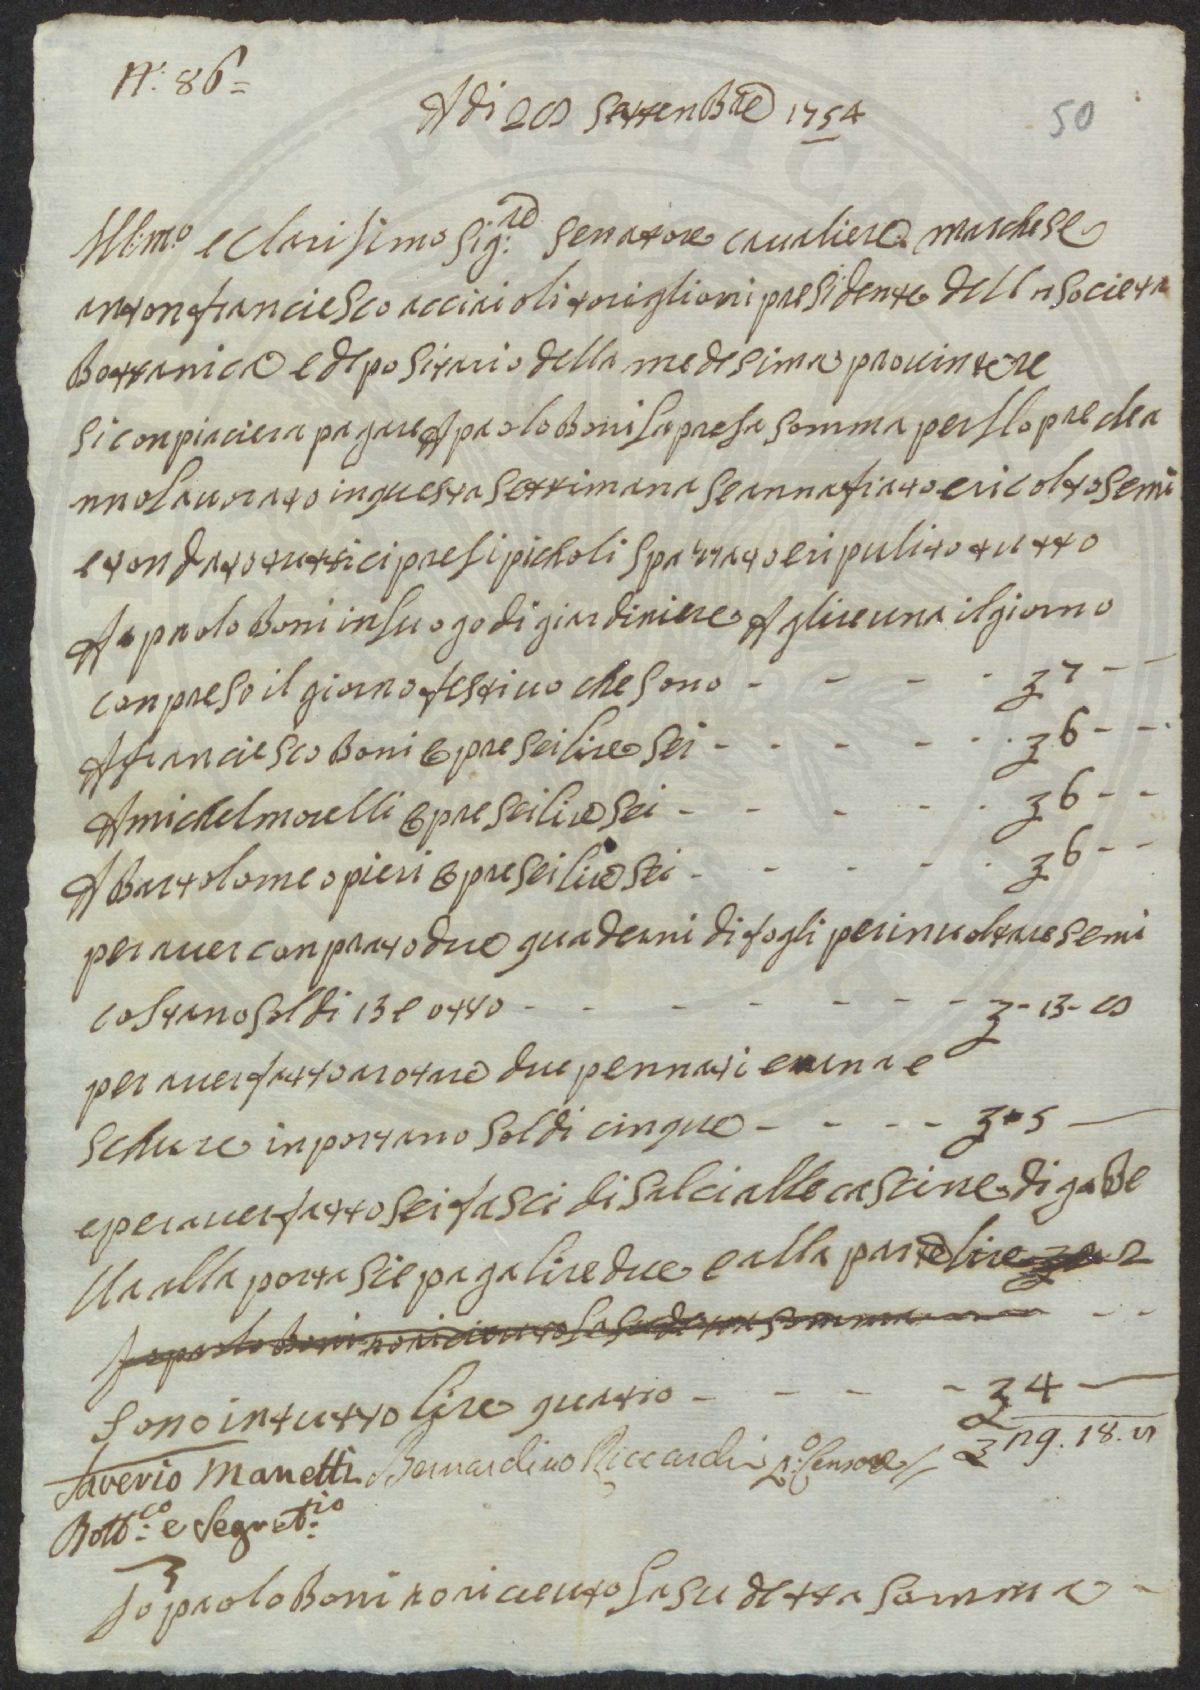 N.° 86=
50
Adi 28 settenbre 1754
Ill:mo e clarisimo Sig:re senatore caualiere marchese
anton franciesco acciaioli toriglioni presidente della societa
bottanica e depositario della medesima
si conpiaciera pagare A paolo boni la presa somma per llopre che a
nno lauorato in questa settimana se annafiato e ricolto semi
e tondato tutti ci presi picholi spazzato e ripulito tutto
A paolo boni in luogo di giardiniere A glire una il giorno
conpreso il giorno festiuo che sono - - - - ʒ 7 - -
A franciesco boni opre sei lire sei - - - - - ʒ 6 - -
A michel morelli opre sei lire sei - - - - - ʒ 6 - -
A bartolomeo pieri opre sei lire sei - - - - - ʒ 6 - -
per auer conprato due quaderni di fogli per inuoltare semi
costano soldi 13 e otto - - - - - - - ʒ - 13 - 8
per auer fatto arotare due pennati e una e
schure inportano soldi cinque - - - - ʒ - 5 —
e per auer fatto sei fasci di salci alle cascine di gabe
lla alla porta sie paga lire due e alla parte lire 2
Io paolo boni o riceuto la su detta somma - -
sono in tutto lire quatro - - - - ʒ 4 —
Saverio Manetti Bernardino Riccardi P.° Censore ʒ 29. 18. 8
Bott:co e Segret:io
Io paolo boni o riceuto la su detta somma -